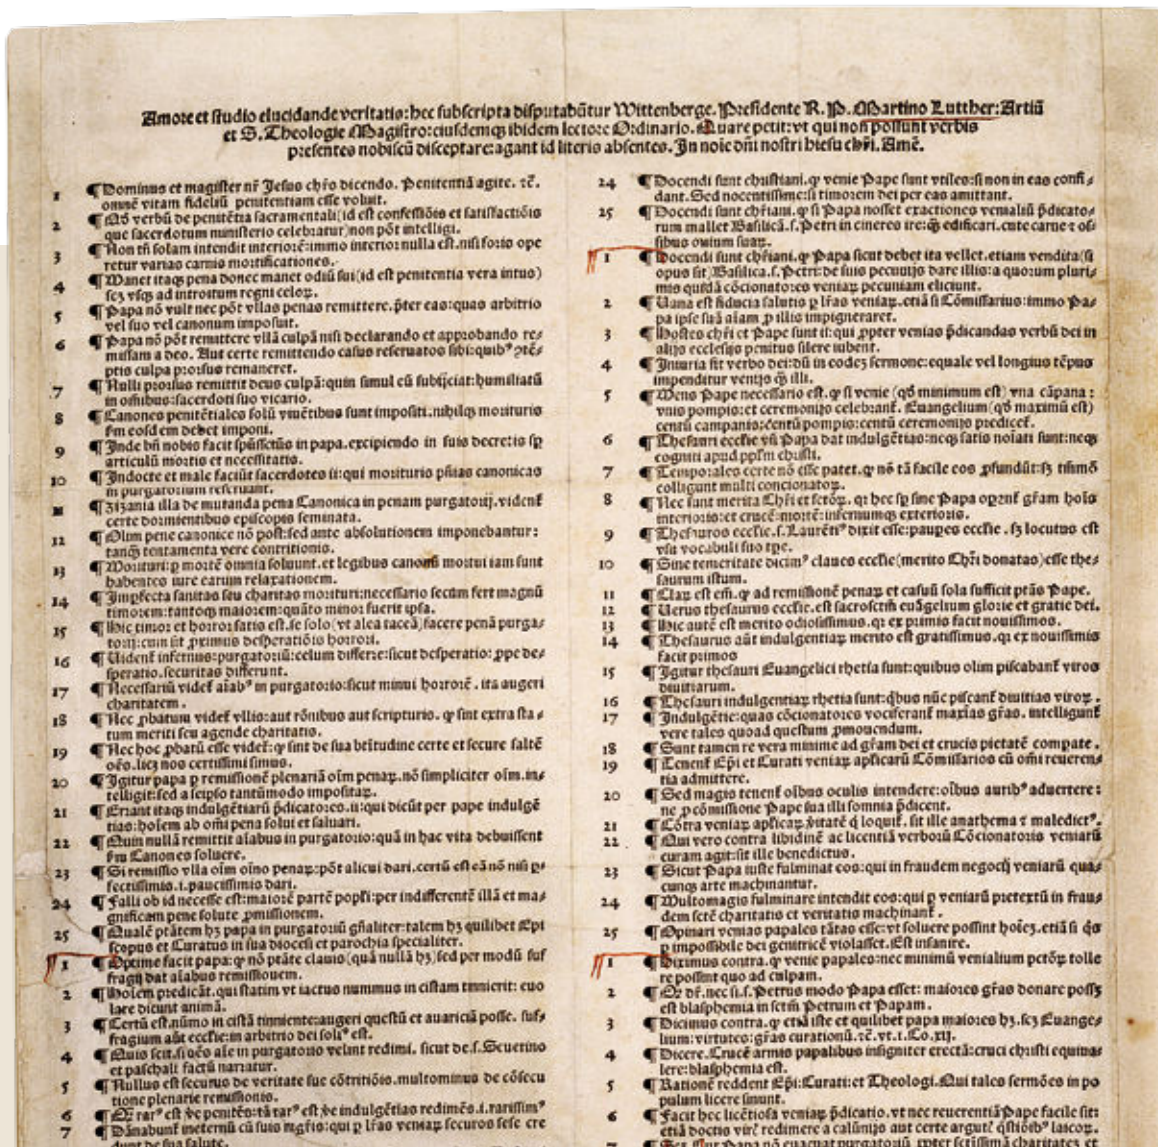 Amore et studio elucidande veritatis: hec subscripta disputabūtur Wittenberge. Presidente R. P. Martino Lutther: Artiū
et S. Theologie Magistro: eiusdemq; ibidem lectore Ordinario. Quare petit: vt qui non possunt verbis
presentes nobiscū disceptare: agant id literis absentes. In noīe dñi nostri hiesu chr̄i. Amē.
1 ¶ Dominus et magister nr̄ Jesus chr̄s dicendo. Penitentiā agite. ⁊c̄.
omnē vitam fideliū penitentiam esse voluit.
2 ¶ Qđ verbū de penitētia sacramentali (id est confessiōis et satisfactiōis
que sacerdotum ministerio celebratur) non pōt intelligi.
3 ¶ Non tn̄ solam intendit interiorē: immo interior nulla est. nisi foris ope
retur varias carnis mortificationes.
4 ¶ Manet itaq; pena donec manet odiū sui (id est penitentia vera intus)
scꝫ vsq; ad introitum regni celoꝝ.
5 ¶ Papa nō vult nec pōt vllas penas remittere. p̄ter eas: quas arbitrio
vel suo vel canonum imposuit.
6 ¶ Papa nō pōt remittere vllā culpā nisi declarando et approbando re-
missam a deo. Aut certe remittendo casus reseruatos sibi: quibꝰ ꝯtē-
ptis culpa prorsus remaneret.
7 ¶ Nulli prorsus remittit deus culpā: quin simul eū subijciat: humiliatū
in omībus: sacerdoti suo vicario.
8 ¶ Canones penitētiales solū viuētibus sunt impositi. nihilq; morituris
s̄m eosdem debet imponi.
9 ¶ Inde bn̄ nobis facit spūssctūs in papa. excipiendo in suis decretis sꝑ
articulū mortis et necessitatis.
10 ¶ Indocte et male faciūt sacerdotes ii: qui morituris pn̄ias canonicas
in purgatorium reseruant.
11 ¶ Zizania illa de mutanda pena Canonica in penam purgatorij. vident̄
certe dormientibus episcopis seminata.
12 ¶ Olim pene canonice nō post: sed ante absolutionem imponebantur:
tanq̄ tentamenta vere contritionis.
13 ¶ Morituri: ꝑ mortē omnia soluunt. et legibus canonū mortui iam sunt
habentes iure earum relaxationem.
14 ¶ Imꝑfecta sanitas seu charitas morituri: necessario secum fert magnū
timorem: tantoq; maiorem: quāto minor fuerit ipsa.
15 ¶ Hic timor et horror satis est. se solo (vt alea taceā) facere penā purga-
torij: cum sit ꝓximus desperatiōis horrori.
16 ¶ Vident̄ infernus: purgatoriū: celum differre: sicut desperatio: ꝓpe de-
speratio. securitas differunt.
17 ¶ Necessariū videt̄ aīabꝰ in purgatorio: sicut minui horrorē. ita augeri
charitatem.
18 ¶ Nec ꝓbatum videt̄ vllis: aut rōnibus aut scripturis. ꝙ sint extra sta-
tum meriti seu agende charitatis.
19 ¶ Nec hoc ꝓbatū esse videt̄: ꝙ sint de sua btītudine certe et secure saltē
oēs. licꝫ nos certissimi simus.
20 ¶ Igitur papa ꝑ remissionē plenariā oīm penaꝝ. nō simpliciter oīm. in-
telligit: sed a seipso tantūmodo impositaꝝ.
21 ¶ Errant itaq; indulgētiarū p̄dicatores. ii: qui dicūt per pape indulgē
tias: hoīem ab omī pena solui et saluari.
22 ¶ Quin nullā remittit aīabus in purgatorio: quā in hac vita debuissent
s̄m Canones soluere.
23 ¶ Si remissio vlla oīm oīno penaꝝ: pōt alicui dari. certū est eā nō nisi ꝑ-
fectissimis. i. paucissimis dari.
24 ¶ Falli ob id necesse est: maiorē partē popl̄i: per indifferentē illā et ma-
gnificam pene solute ꝓmissionem.
25 ¶ Qualē ptātem hꝫ papa in purgatoriū gn̄aliter: talem hꝫ quilibet Epi
scopus et Curatus in sua diocesi et parochia specialiter.
1 ¶ Optime facit papa: ꝙ nō ptāte clauis (quā nullā hꝫ) sed per modū suf
fragij dat aīabus remissionem.
2 ¶ Hoīem predicāt. qui statim vt iactus nummus in cistam tinnierit: euo
lare dicunt animā.
3 ¶ Certū est. nūmo in cistā tinniente: augeri questū et auariciā posse. suf-
fragium aūt ecclsie: in arbitrio dei soliꝰ est.
4 ¶ Quis scit. si oēs aīe in purgatorio velint redimi. sicut de. s. Seuerino
et paschali factū narratur.
5 ¶ Nullus est securus de veritate sue cōtritiōis. multominus de cōsecu
tione plenarie remissionis.
6 ¶ Qꝫ rarꝰ est ve̅ penitēs: tā rarꝰ est ve̅ indulgētias redimēs. i. rarissimꝰ
7 ¶ Dānabunt̄ ineternū cū suis mgr̄is: qui ꝑ lr̄as veniaꝝ securos sese cre
dunt de sua salute.
24 ¶ Docendi sunt christiani. ꝙ venie Pape sunt vtiles: si non in eas confi-
dant. Sed nocentissime: si timorem dei per eas amittant.
25 ¶ Docendi sunt chr̄iani. ꝙ si Papa nosset exactiones venialiū p̄dicato-
rum mallet Basilicā. s. Petri in cineres ire: q̄ȝ edificari. cute carne ⁊ os-
sibus ouium suaꝝ.
1 ¶ Docendi sunt chr̄iani. ꝙ Papa sicut debet ita vellet. etiam vendita (si
opus sit) Basilica. s. Petri: de suis pecunijs dare illis: a quorum pluri-
mis quidā cōcionatores veniaꝝ pecuniam eliciunt.
2 ¶ Vana est fiducia salutis ꝑ lr̄as veniaꝝ. etiā si Cōmissarius: immo Pa-
pa ipse suā aīam ꝓ illis impigneraret.
3 ¶ Hostes chr̄i et Pape sunt ii: qui ꝓpter venias p̄dicandas verbū dei in
alijs ecclesijs penitus silere iubent.
4 ¶ Iniuria fit verbo dei: dū in eodeꝫ sermone: equale vel longius tēpus
impenditur venijs q̄ȝ illi.
5 ¶ Mens Pape necessario est. ꝙ si venie (qđ minimum est) vna cāpana:
vnis pompis: et ceremonijs celebrant̄. Euangelium (qđ maximū est)
centū campanis: centū pompis: centū ceremonijs predicet̄.
6 ¶ Thesauri ecclsie vn̄ Papa dat indulgētias: neq; satis noīati sunt: neq;
cogniti apud ppl̄m christi.
7 ¶ Temporales certe nō esse patet. ꝙ nō tā facile eos ꝓfundūt: sꝫ tm̄mō
colligunt multi concionatoꝝ.
8 ¶ Nec sunt merita Chr̄i et sctōꝝ. qꝛ hec sꝑ sine Papa operant̄ gr̄am hoīs
interioris: et crucē: mortē: infernumq; exterioris.
9 ¶ Thesauros ecclsie. s. Laurētiꝰ dixit esse: pauꝑes ecclsie. sꝫ locutus est
vsu vocabuli suo tꝑe.
10 ¶ Sine temeritate dicimꝰ claues ecclsie (merito Chr̄i donatas) esse the-
saurum istum.
11 ¶ Claꝝ est em̄. ꝙ ad remissionē penaꝝ et casuū sola sufficit ptās Pape.
12 ¶ Verus thesaurus ecclsie. est sacrosctm̄ euāgelium glorie et gratie dei.
13 ¶ Hic autē est merito odiosissimus. qꝛ ex primis facit nouissimos.
14 ¶ Thesaurus aūt indulgentiaꝝ merito est gratissimus. qꝛ ex nouissimis
facit primos
15 ¶ Igitur thesauri Euangelici rhetia sunt: quibus olim piscabant̄ viros
diuitiarum.
16 ¶ Thesauri indulgentiaꝝ rhetia sunt: qībus nūc piscant̄ diuitias viroꝝ.
17 ¶ Indulgētie: quas cōcionatores vociferant̄ maxīas gr̄as. intelligunt̄
vere tales quoad questum ꝓmouendum.
18 ¶ Sunt tamen re vera minime ad gr̄am dei et crucis pietatē compate.
19 ¶ Tenent̄ Ep̄i et Curati veniaꝝ apl̄icarū Cōmissarios cū omī reueren-
tia admittere.
20 ¶ Sed magis tenent̄ oībus oculis intendere: oībus auribꝰ aduertere:
ne ꝓ cōmissione Pape sua illi somnia p̄dicent.
21 ¶ Cōtra veniaꝝ apl̄icaꝝ v̄itatē q̄ loquit̄. sit ille anathema ⁊ maledictꝰ.
22 ¶ Qui vero contra libidinē ac licentiā verborū Cōcionatoris veniarū
curam agit: sit ille benedictus.
23 ¶ Sicut Papa iuste fulminat eos: qui in fraudem negocij veniarū qua-
cunq; arte machinantur.
24 ¶ Multomagis fulminare intendit eos: qui ꝑ veniarū pretextū in frau-
dem sctē charitatis et veritatis machinant̄.
25 ¶ Opinari venias papales tātas esse: vt soluere possint hoīeꝫ. etiā si q̄s
ꝑ impossibile dei genitricē violasset. Est insanire.
1 ¶ Diximus contra. ꝙ venie papales: nec minimū venialium pctōꝝ tolle
re possint quo ad culpam.
2 ¶ Qꝫ dr̄. nec si. s. Petrus modo Papa esset: maiores gr̄as donare possꝫ
est blasphemia in sctm̄ Petrum et Papam.
3 ¶ Dicimus contra. ꝙ etiā iste et quilibet papa maiores hꝫ. scꝫ Euange-
lium: virtutes: gr̄as curationū. ⁊c̄. vt. i. Co. xij.
4 ¶ Dicere. Crucē armis papalibus insigniter erectā: cruci christi equiua-
lere: blasphemia est.
5 ¶ Rationē reddent Ep̄i: Curati: et Theologi. Qui tales sermōes in po
pulum licere sinunt.
6 ¶ Facit hec licētiosa veniaꝝ p̄dicatio. vt nec reuerentiā Pape facile sit:
etiā doctis viris redimere a calūnijs aut certe argutis q̄stiōibꝰ laicoꝝ.